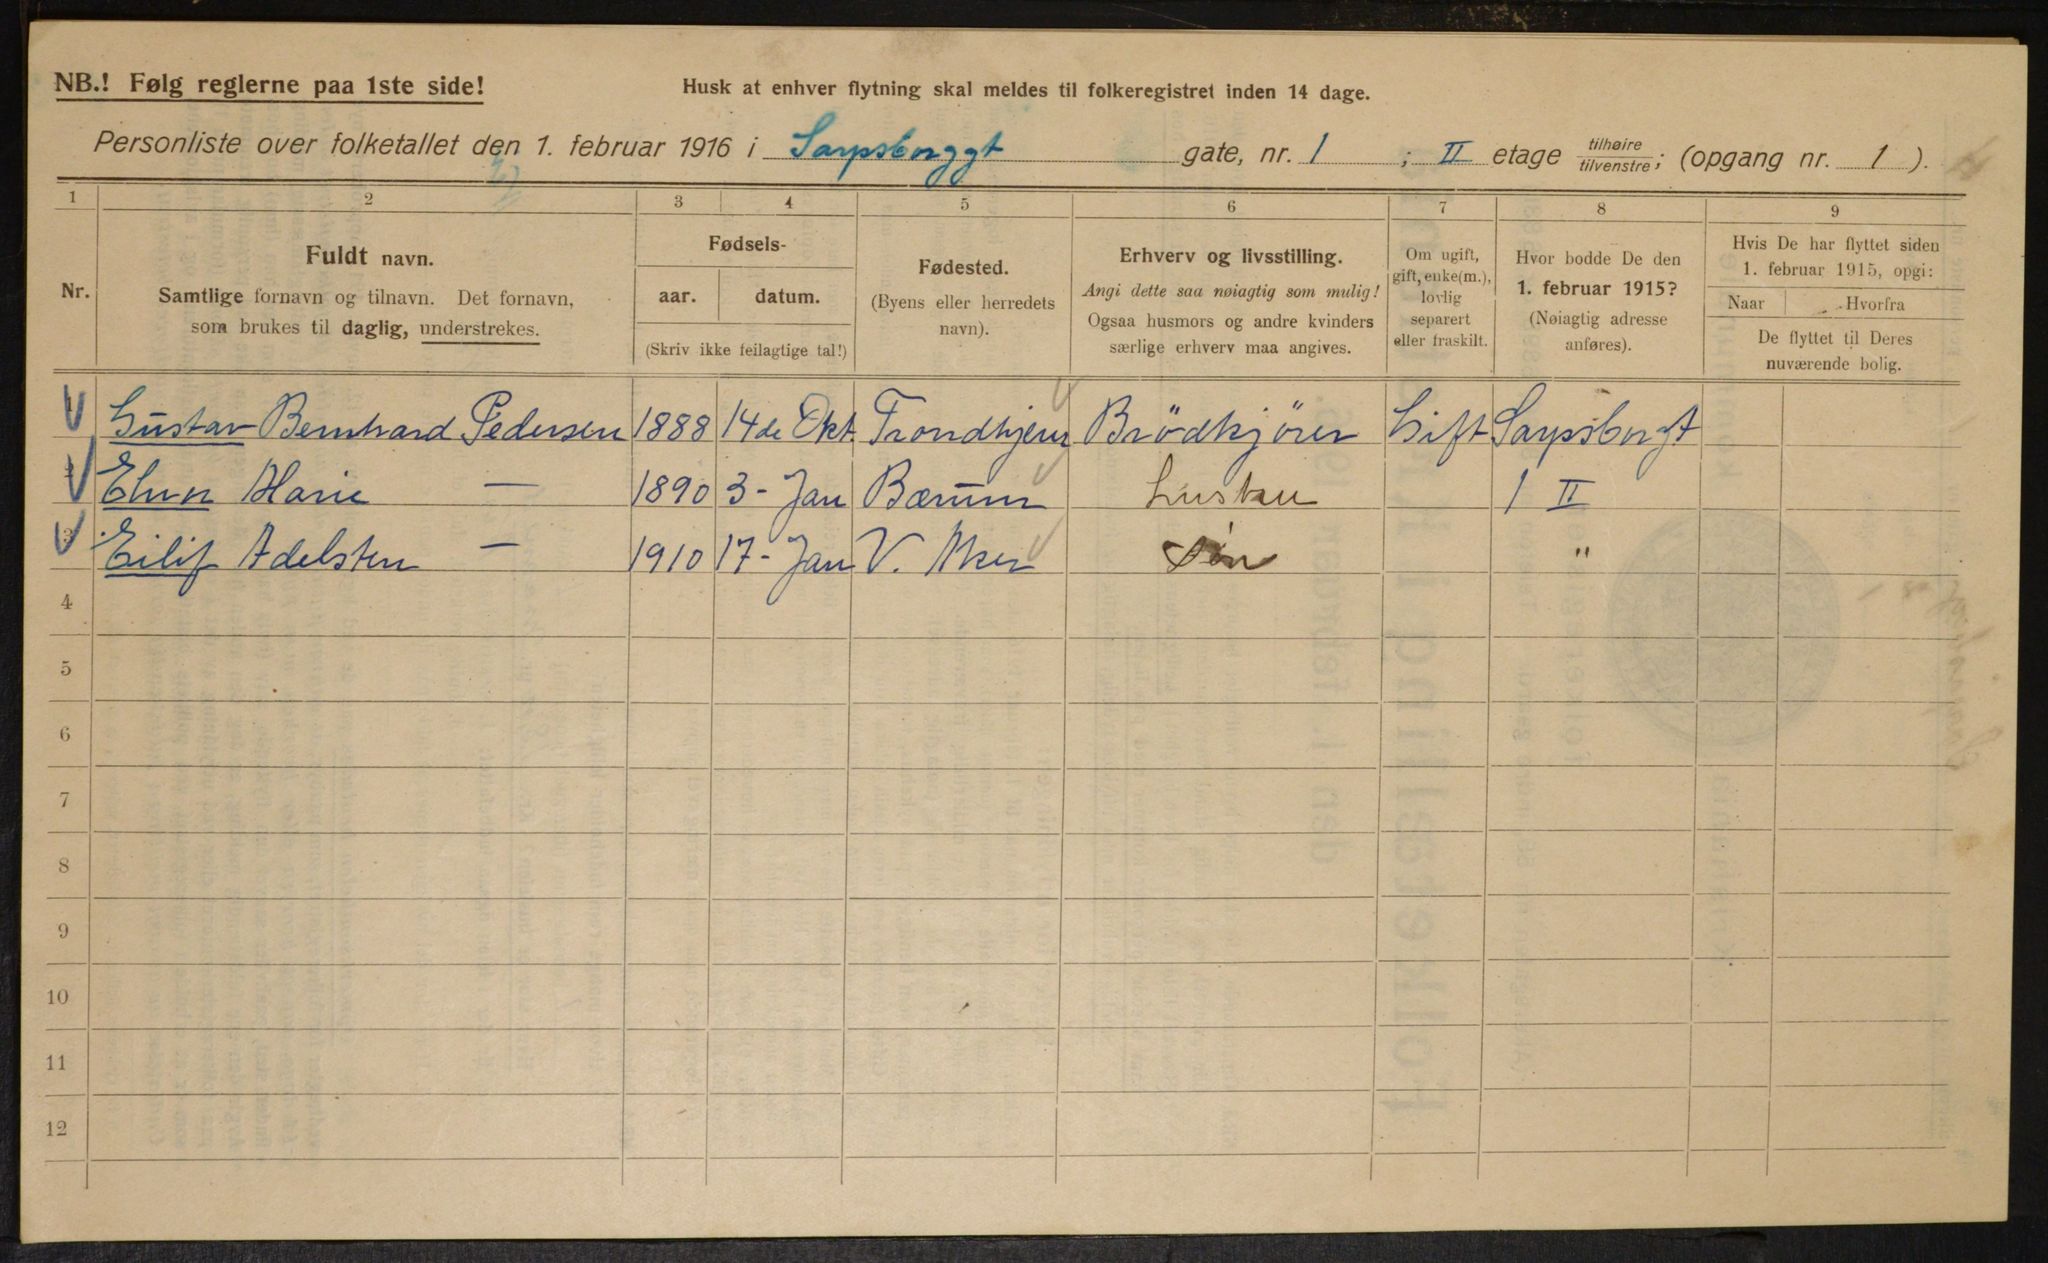 NB.! Følg reglerne paa 1ste side!
Husk at enhver flytning skal meldes til folkeregistret inden 14 dage.
Personliste over folketallet den 1. februar 1916 i Sarpsborggt gate, nr. 1 ; II etage tilhøire/tilvenstre; (opgang nr. 1 ).
1 2 3 4 5 6 7 8 9
Nr.
Fuldt navn.
Samtlige fornavn og tilnavn. Det fornavn,
som brukes til daglig, understrekes.
Fødsels-
aar. datum.
(Skriv ikke feilagtige tal!)
Fødested.
(Byens eller herredets
navn).
Erhverv og livsstilling.
Angi dette saa nøiagtig som mulig!
Ogsaa husmors og andre kvinders
særlige erhverv maa angives.
Om ugift,
gift, enke(m.),
lovlig
separert
eller fraskilt.
Hvor bodde De den
1. februar 1915?
(Nøiagtig adresse
anføres).
Hvis De har flyttet siden
1. februar 1915, opgi:
Naar Hvorfra
De flyttet til Deres
nuværende bolig.
1 Gustav Bernhard Pedersen 1888 14de Okt. Trondhjem Brödkjörer Gift Sarpsborgt
Marie — 1890 3 - Jan Bærum 1 II
3 Eilif Adelsten — 1910 17 - Jan V. Aker Søn "
4
5
6
7
8
9
10
11
12